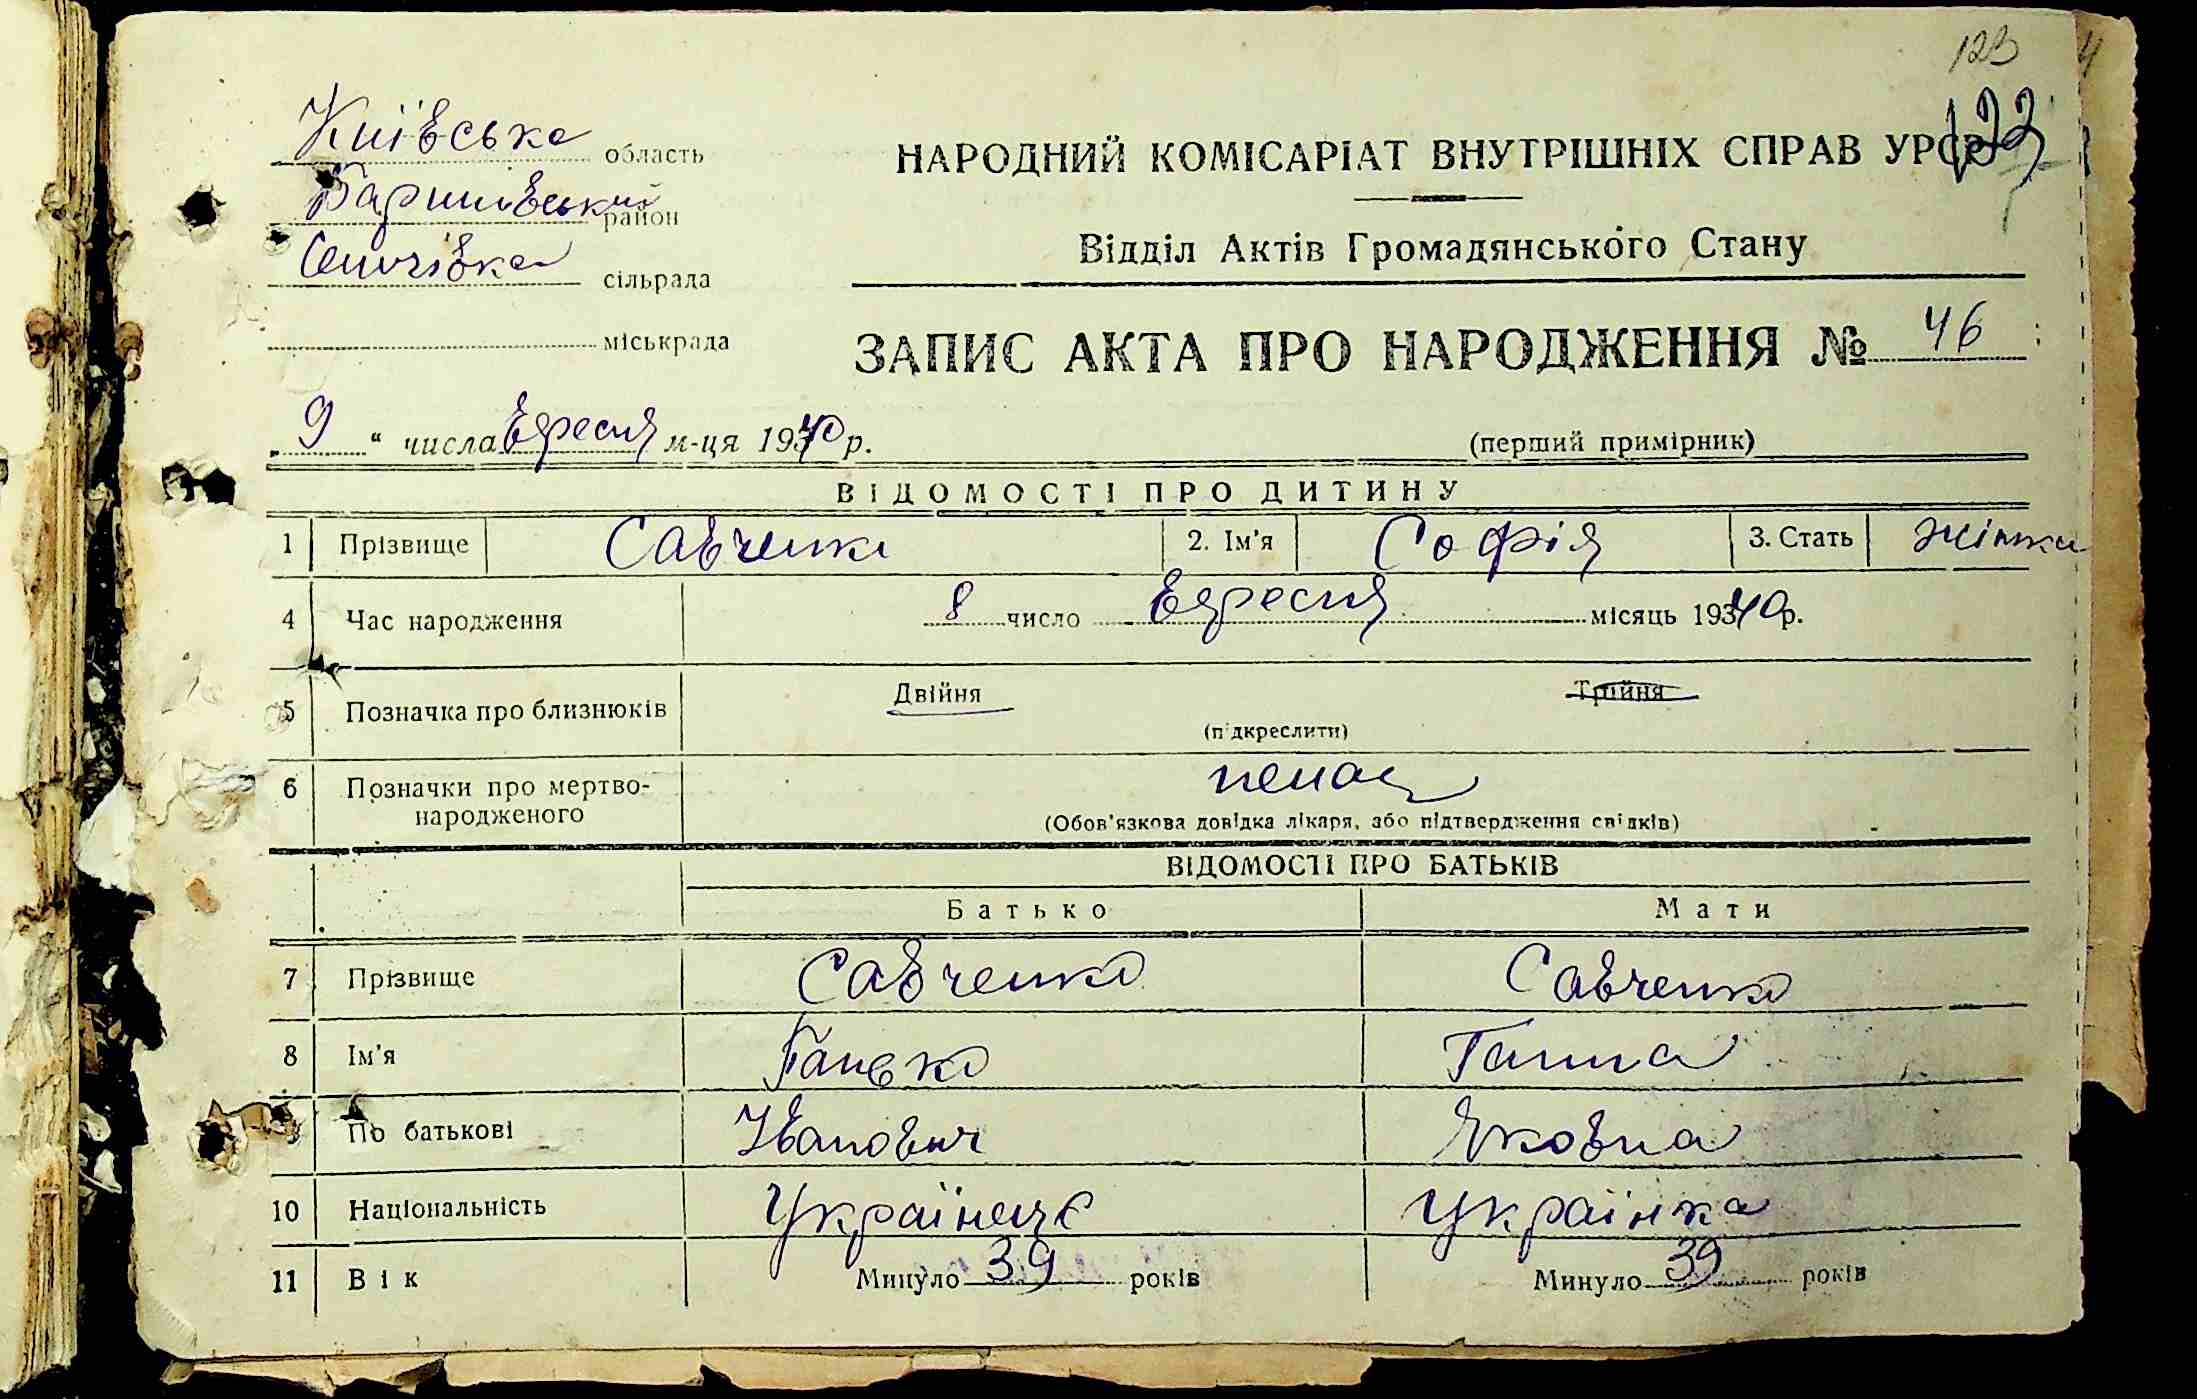 123
122
Київська область
Баришівський район
Сеничівка сільрада
міськрада
НАРОДНИЙ КОМІСАРІАТ ВНУТРІШНІХ СПРАВ УРСР
Відділ Актів Громадянського Стану
ЗАПИС АКТА ПРО НАРОДЖЕННЯ № 46
9 " числа вересня м-ця 1940 р.
(перший примірник)
ВІДОМОСТІ ПРО ДИТИНУ
1 Прізвище Савченко 2. Ім'я Софія 3. Стать жінка
4 Час народження 8 число вересня місяць 1940 р.
5 Позначка про близнюків Двійня Трійня
(підкреслити)
6 Позначки про мертвонародженого немає
(Обов'язкова довідка лікаря, або підтвердження свідків)
ВІДОМОСТІ ПРО БАТЬКІВ
Батько Мати
7 Прізвище Савченко Савченко
8 Ім'я Панько Ганна
9 По батькові Іванович Яковна
10 Національність Українець Українка
11 Вік Минуло 39 років Минуло 39 років